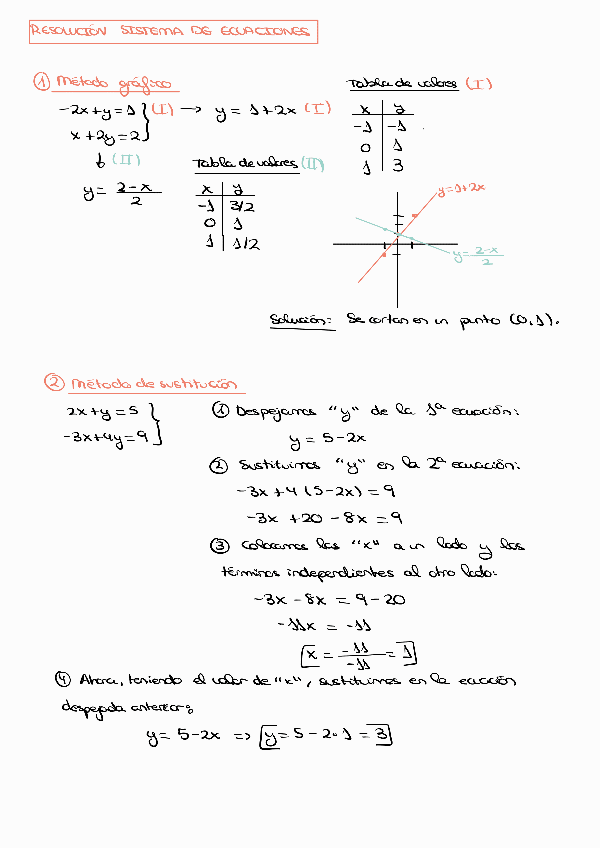 RESOLUCIÓN SISTEMA DE ECUACIONES
① Método gráfico
-2x+y=1 (I) → y = 1+2x (I)
x+2y=2
↓ (II)
y = (2-x)/2
Tabla de valores (I)
x | y
-1 | -1
0 | 1
1 | 3
Tabla de valores (II)
x | y
-1 | 3/2
0 | 1
1 | 1/2
y=1+2x
y=(2-x)/2
Solución: Se cortan en un punto (0,1).
② Método de sustitución
2x+y=5
-3x+4y=9
① Despejamos "y" de la 1ª ecuación:
y = 5-2x
② Sustituimos "y" en la 2ª ecuación:
-3x+4(5-2x)=9
-3x +20 -8x =9
③ Colocamos las "x" a un lado y los
términos independientes al otro lado:
-3x - 8x = 9-20
-11x = -11
x = -11/-11 = 1
④ Ahora, teniendo el valor de "x", sustituimos en la ecuación
despejada anterior:
y= 5-2x => y= 5-2·1 = 3